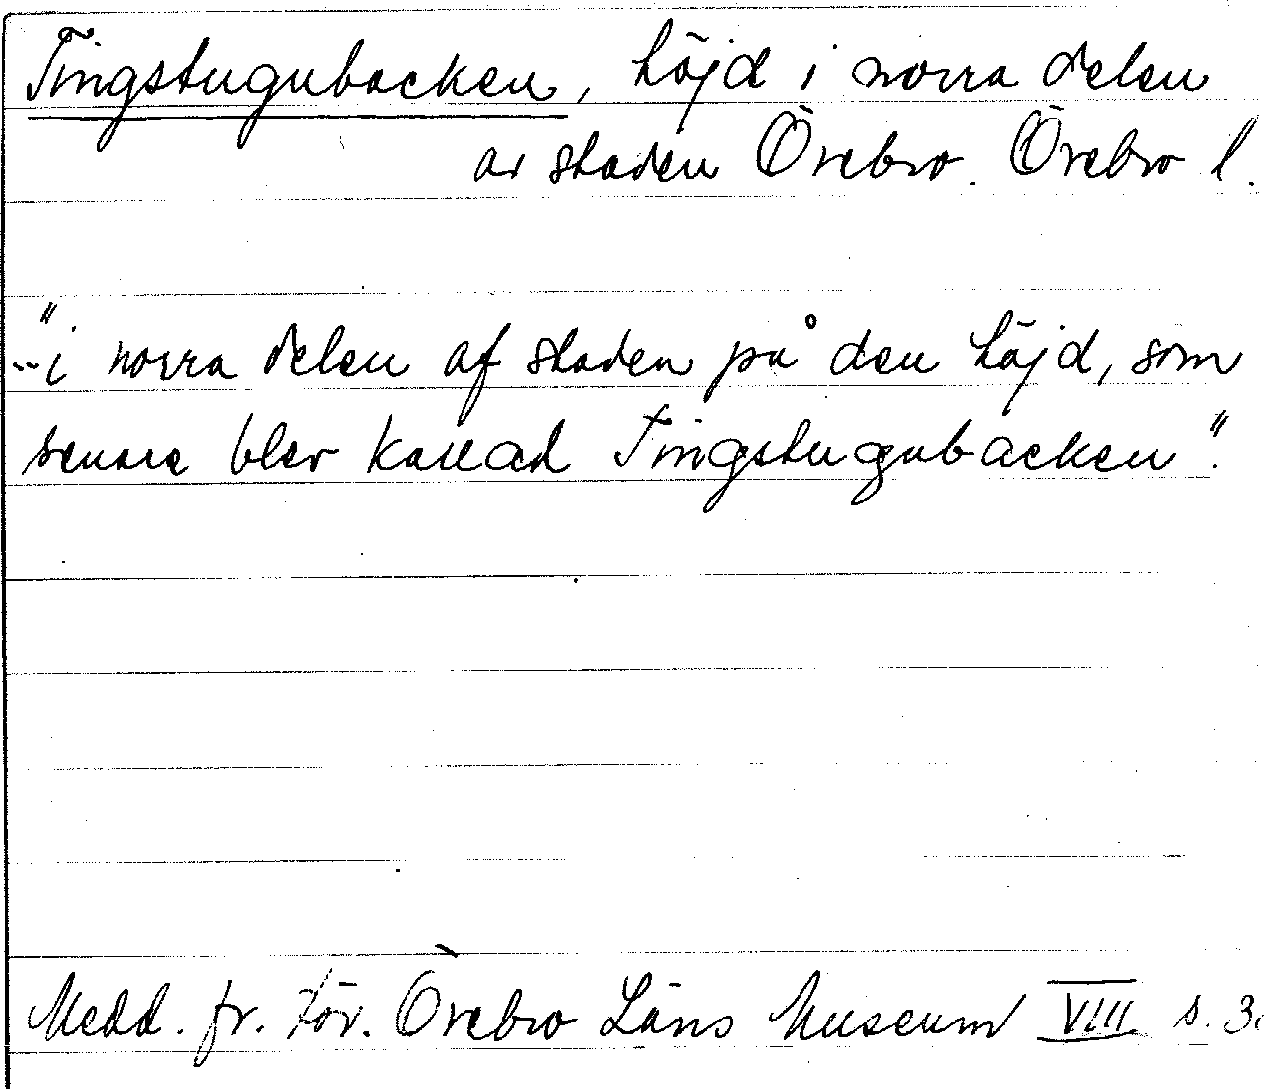 Tingstugubacken, höjd i norra delen
av staden Örebro. Örebro l.
..."i norra delen af staden på den höjd, som
senare blev kallad Tingstugubacken".
Medd. fr. För. Örebro Läns Museum VIII s. 3.